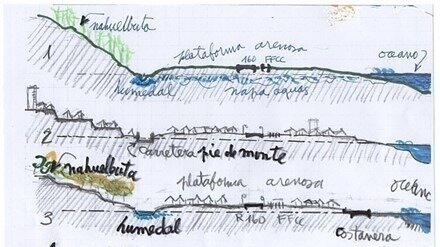 nahuelbuta
plataforma arenosa
oceano
160 FFCC
humedal
napa aguas
2
carretera pie de monte
nahuelbuta
plataforma arenosa
oceano
3
humedal
R 160 FFCC
costanera